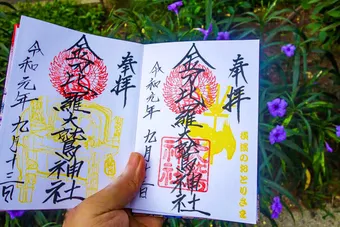 奉拝
金刀比羅大鷲神社
令和元年九月十三日
奉拝
横濱のおとりさま
金刀比羅大鷲神社
令和元年九月